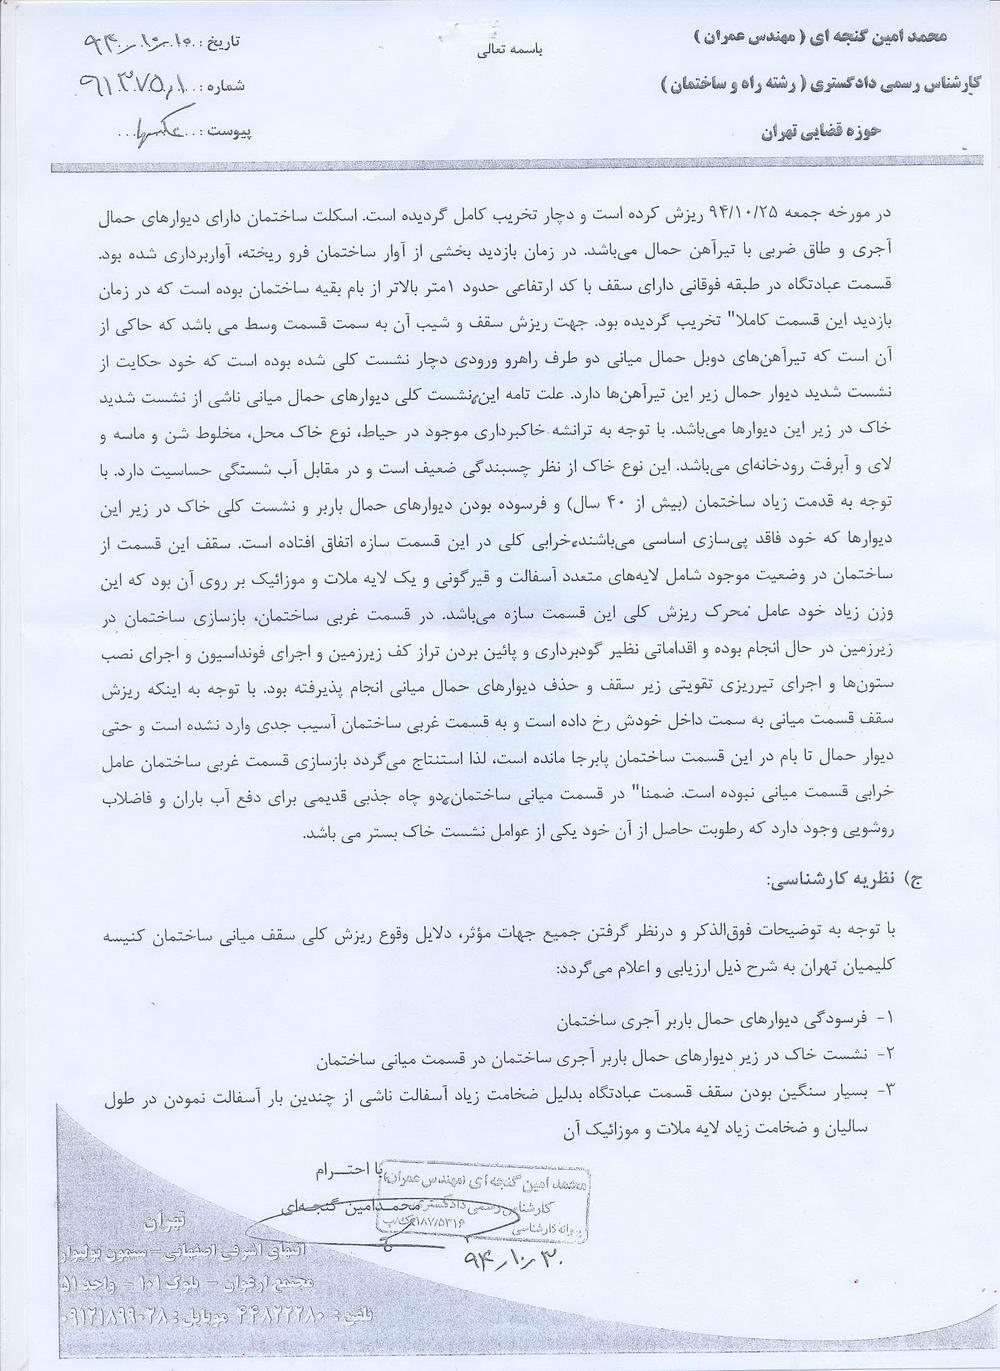 باسمه تعالی
محمد امین گنجه ای ( مهندس عمران )
کارشناس رسمی دادگستری ( رشته راه و ساختمان )
حوزه قضایی تهران
تاریخ :
شماره :
پیوست : عکسها
در مورخه جمعه ۹۴/۱۰/۲۵ ریزش کرده است و دچار تخریب کامل گردیده است. اسکلت ساختمان دارای دیوارهای حمال
آجری و طاق ضربی با تیرآهن حمال می‌باشد. در زمان بازدید بخشی از آوار ساختمان فرو ریخته، آواربرداری شده بود.
قسمت عبادتگاه در طبقه فوقانی دارای سقف با کد ارتفاعی حدود ۱متر بالاتر از بام بقیه ساختمان بوده است که در زمان
بازدید این قسمت کاملا" تخریب گردیده بود. جهت ریزش سقف و شیب آن به سمت قسمت وسط می باشد که حاکی از
آن است که تیرآهن‌های دوبل حمال میانی دو طرف راهرو ورودی دچار نشست کلی شده بوده است که خود حکایت از
نشست شدید دیوار حمال زیر این تیرآهن‌ها دارد. علت تامه این نشست کلی دیوارهای حمال میانی ناشی از نشست شدید
خاک در زیر این دیوارها می‌باشد. با توجه به ترانشه خاکبرداری موجود در حیاط، نوع خاک محل، مخلوط شن و ماسه و
لای و آبرفت رودخانه‌ای می‌باشد. این نوع خاک از نظر چسبندگی ضعیف است و در مقابل آب شستگی حساسیت دارد. با
توجه به قدمت زیاد ساختمان (بیش از ۴۰ سال) و فرسوده بودن دیوارهای حمال باربر و نشست کلی خاک در زیر این
دیوارها که خود فاقد پی‌سازی اساسی می‌باشند، خرابی کلی در این قسمت سازه اتفاق افتاده است. سقف این قسمت از
ساختمان در وضعیت موجود شامل لایه‌های متعدد آسفالت و قیرگونی و یک لایه ملات و موزائیک بر روی آن بود که این
وزن زیاد خود عامل محرک ریزش کلی این قسمت سازه می‌باشد. در قسمت غربی ساختمان، بازسازی ساختمان در
زیرزمین در حال انجام بوده و اقداماتی نظیر گودبرداری و پائین بردن تراز کف زیرزمین و اجرای فونداسیون و اجرای نصب
ستون‌ها و اجرای تیرریزی تقویتی زیر سقف و حذف دیوارهای حمال میانی انجام پذیرفته بود. با توجه به اینکه ریزش
سقف قسمت میانی به سمت داخل خودش رخ داده است و به قسمت غربی ساختمان آسیب جدی وارد نشده است و حتی
دیوار حمال تا بام در این قسمت ساختمان پابرجا مانده است، لذا استنتاج می‌گردد بازسازی قسمت غربی ساختمان عامل
خرابی قسمت میانی نبوده است. ضمنا" در قسمت میانی ساختمان، دو چاه جذبی قدیمی برای دفع آب باران و فاضلاب
روشویی وجود دارد که رطوبت حاصل از آن خود یکی از عوامل نشست خاک بستر می باشد.
ج) نظریه کارشناسی:
با توجه به توضیحات فوق‌الذکر و درنظر گرفتن جمیع جهات مؤثر، دلایل وقوع ریزش کلی سقف میانی ساختمان کنیسه
کلیمیان تهران به شرح ذیل ارزیابی و اعلام می‌گردد:
۱- فرسودگی دیوارهای حمال باربر آجری ساختمان
۲- نشست خاک در زیر دیوارهای حمال باربر آجری ساختمان در قسمت میانی ساختمان
۳- بسیار سنگین بودن سقف قسمت عبادتگاه بدلیل ضخامت زیاد آسفالت ناشی از چندین بار آسفالت نمودن در طول
سالیان و ضخامت زیاد لایه ملات و موزائیک آن
با احترام
محمدامین گنجه‌ای
محمد امین گنجه ای (مهندس عمران)
کارشناس رسمی دادگستری
پروانه کارشناسی
۹۴/۱۰/۳۰
تهران
انتهای اشرفی اصفهانی – سیمون بولیوار
مجتمع ارغوان – بلوک ۱۰۱ – واحد ۵۱
تلفن : ۴۴۸۲۲۲۸۰ موبایل : ۰۹۱۲۱۸۹۹۰۲۸